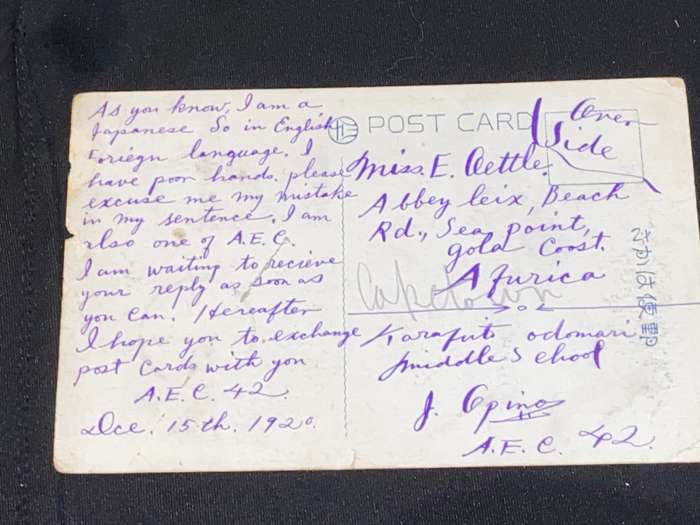 As you know, I am a
Japanese So in English
Foriegn language. I
have poor hands. please
excuse me my mistake
in my sentence, I am
also one of A.E.C.
I am waiting to recieve
your reply as soon as
you can. Hereafter
I hope you to exchange
post Cards with you
A.E.C. 42.
Dce. 15th. 1920.
POST CARD
Over
Side
Miss. E. Oettle.
Abbey leix, Beach
Rd., Sea point,
gold Coost.
Afurica
Capetown
郵便はかき
Karafuto odomari
middle School
J. Opino
A.E.C. 42.